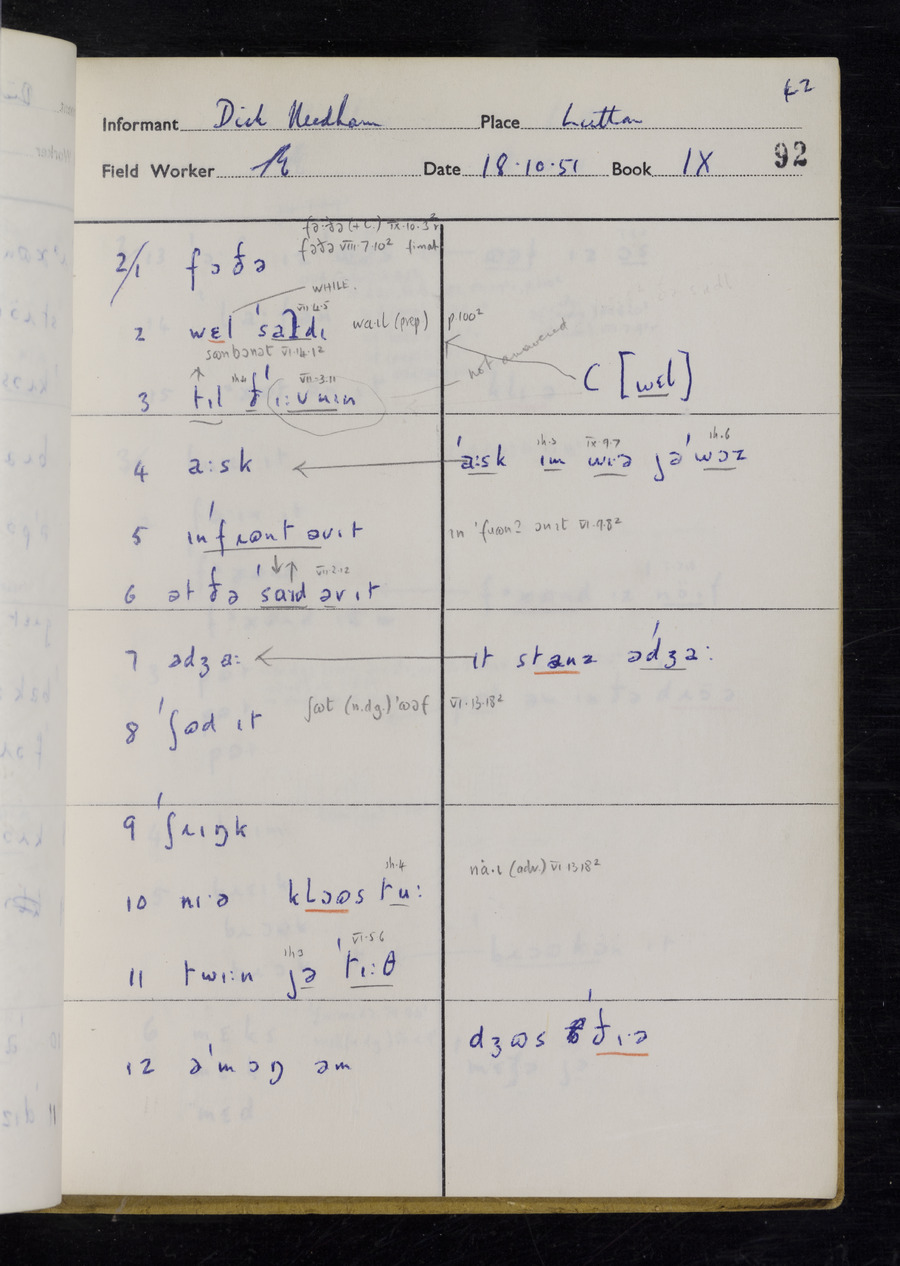 42
Informant Dick Needham Place Lutton
Field Worker Date 18.10.51 Book IX 92
fəːðə (+C.) IX.10.3²
2/1 fəðə fəðə VIII.7.10² final
WHILE.
2 wɛl ˈsaɪdɪ VII.4.5 waɪl (prep) p.100²
VI.14.1² not answered
3 tɪl VII.3.11 C [wɛl]
4 aːsk ˈaːsk ɪm wɪə jəˈwɔz IX.9.7
5 ɪnˈfɹɷnt əvɪt VI.9.8²
6 ət ðə ˈsaɪd əv ɪt VII.2.12
7 ədʒaː ɪt stanz əˈdʒaː
8 ˈʃɷd ɪt ʃɷt (n.dg.) ˈɷəf VI.13.18²
9 ˈʃɹɪŋk
10 nɪˑə klɔəs tuː ih.4 (adv.) VI.13.18²
11 twiːn jə ˈtɪːθ ih.3 VI.5.6
12 əˈmɔŋ əm dʒɷs ˈðɪˑə